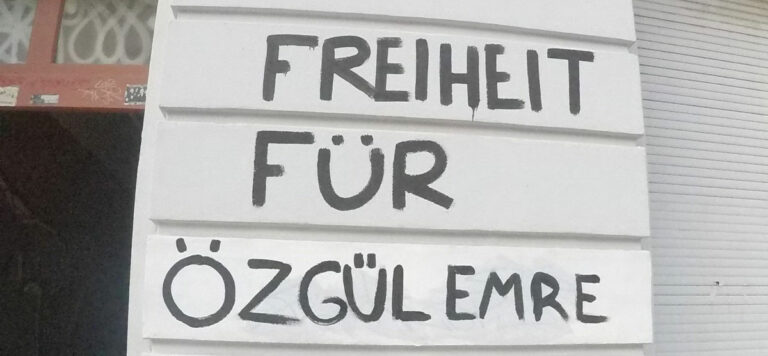 FREIHEIT
FÜR
ÖZGÜL EMRE